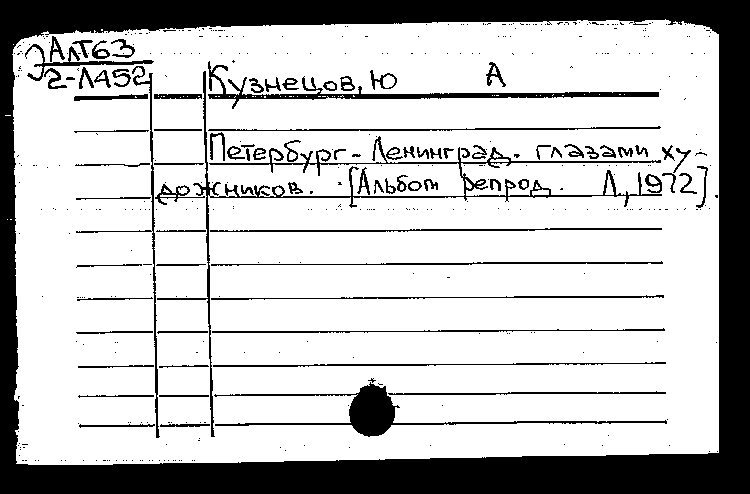 ЭАлТ63
2-Л452
Кузнецов, Ю А
Петербург - Ленинград. глазами ху-
дожников. [Альбом репрод. Л., 1972].